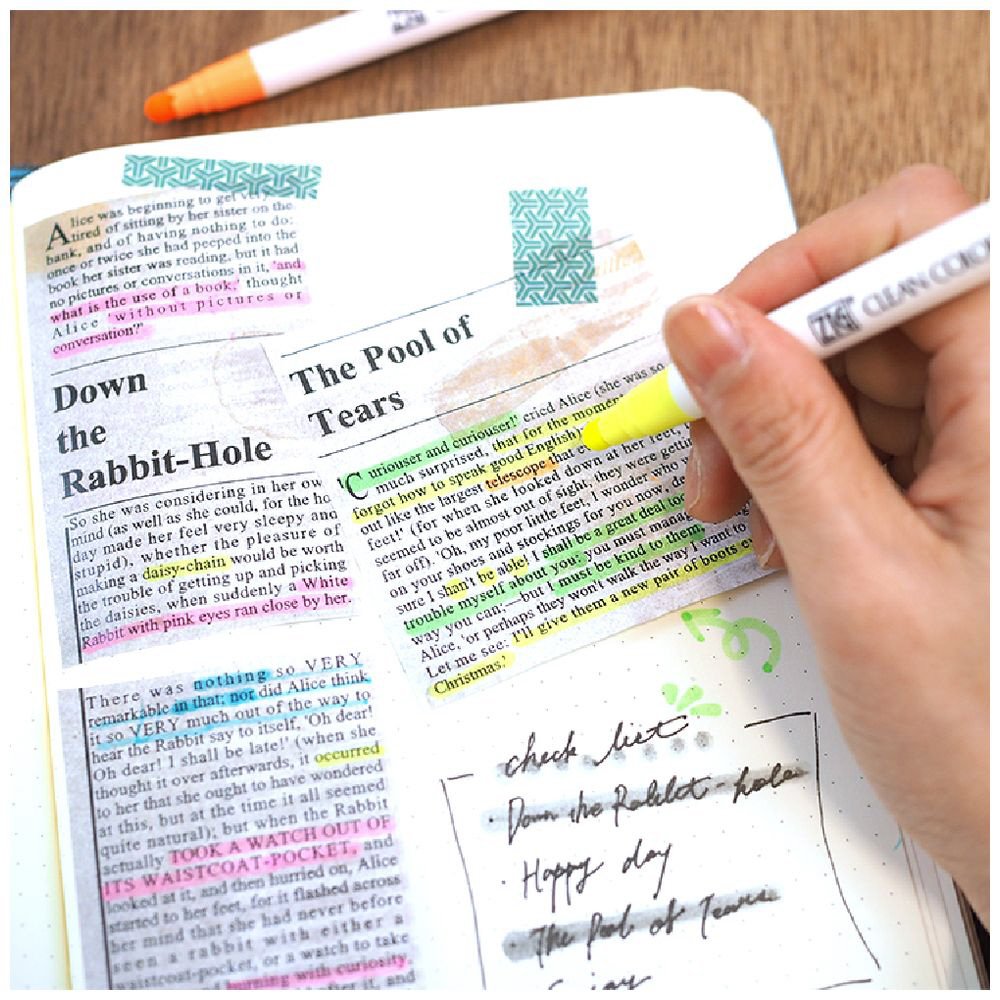 Alice was beginning to get very
tired of sitting by her sister on the
bank, and of having nothing to do:
once or twice she had peeped into the
book her sister was reading, but it had
no pictures or conversations in it, 'and
what is the use of a book,' thought
Alice 'without pictures or
conversation?'
Down
the
Rabbit-Hole
So she was considering in her ow
mind (as well as she could, for the ho
day made her feel very sleepy and
stupid), whether the pleasure of
making a daisy-chain would be worth
the trouble of getting up and picking
the daisies, when suddenly a White
Rabbit with pink eyes ran close by her.
There was nothing so VERY
remarkable in that; nor did Alice think
it so VERY much out of the way to
hear the Rabbit say to itself, 'Oh dear!
Oh dear! I shall be late!' (when she
thought it over afterwards, it occurred
to her that she ought to have wondered
at this, but at the time it all seemed
quite natural); but when the Rabbit
actually TOOK A WATCH OUT OF
ITS WAISTCOAT-POCKET, and
looked at it, and then hurried on, Alice
started to her feet, for it flashed across
her mind that she had never before
seen a rabbit with either a
waistcoat-pocket, or a watch to take
burning with curiosity,
after it, and
The Pool of
Tears
'Curiouser and curiouser!' cried Alice (she was so
much surprised, that for the moment
forgot how to speak good English)
out like the largest telescope that e
feet!' (for when she looked down at her feet
seemed to be almost out of sight, they were getti
far off). 'Oh, my poor little feet, I wonder who
on your shoes and stockings for you now, de
sure I shan't be able! I shall be a great deal too
trouble myself about you: you must manag
way you can;—but I must be kind to them,
Alice, 'or perhaps they won't walk the way I want to
Let me see: I'll give them a new pair of boots ev
Christmas.'
check list
· Down the Rabbit-hole
· Happy day
· The Pool of Tears
Enjoy
ZIG CLEAN COLOR